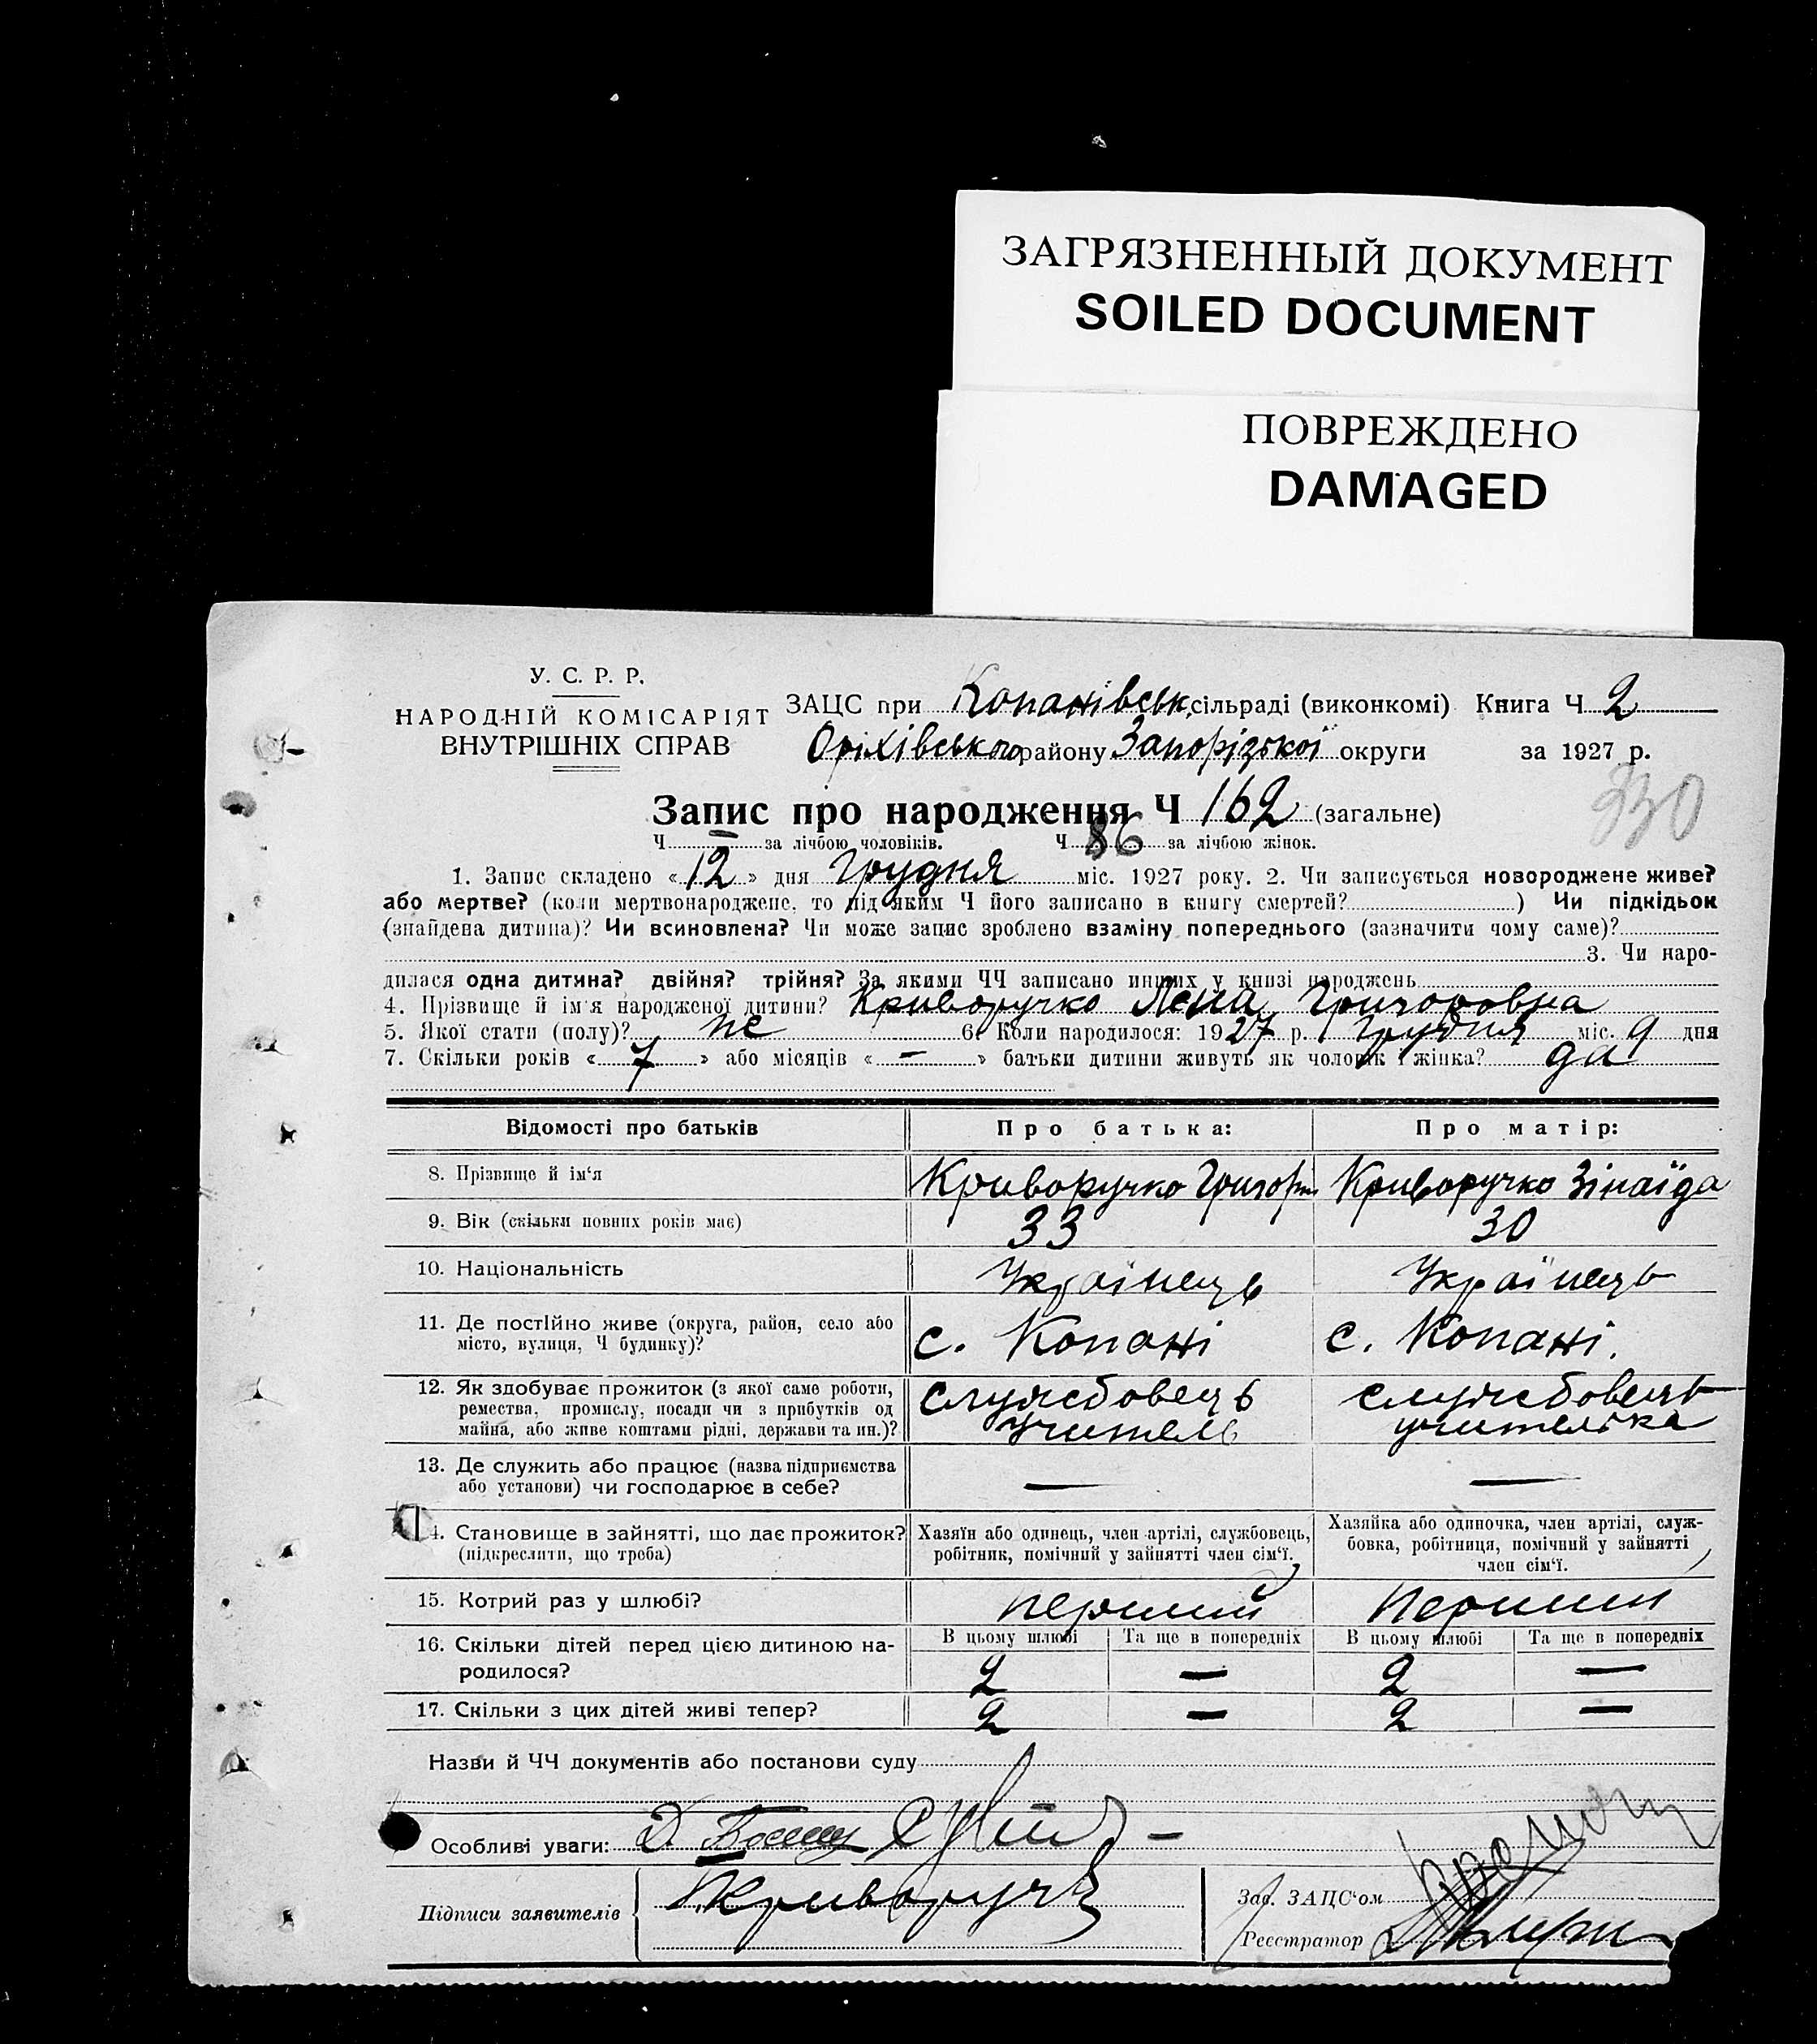 ЗАГРЯЗНЕННЫЙ ДОКУМЕНТ
SOILED DOCUMENT
ПОВРЕЖДЕНО
DAMAGED
У. С. Р. Р.
НАРОДНІЙ КОМІСАРІЯТ
ВНУТРІШНІХ СПРАВ
ЗАЦС при Копанівськ. сільраді (виконкомі) Книга Ч 2
Оріхівського району Запорізької округи за 1927 р.
330
Запис про народження Ч 162 (загальне)
Ч — за лічбою чоловіків. Ч 86 за лічбою жінок.
1. Запис складено « 12 » дня Грудня міс. 1927 року. 2. Чи записується новороджене живе?
або мертве? (коли мертвонароджене, то під яким Ч його записано в книгу смертей? ) Чи підкідьок
(знайдена дитина)? Чи всиновлена? Чи може запис зроблено взаміну попереднього (зазначити чому саме)?
3. Чи наро-
дилася одна дитина? двійня? трійня? За якими ЧЧ записано инших у книзі народжень
4. Прізвище й ім'я народженої дитини? Криворучко Лена Григоровна
5. Якої стати (полу)? 6. Коли народилося: 1927 р. Грудня міс. 9 дня
7. Скільки років « 7 » або місяців « — » батьки дитини живуть як чоловік і жінка? да
Відомості про батьків Про батька: Про матір:
8. Прізвище й ім'я Криворучко Григорій Криворучко Зінаїда
9. Вік (скільки повних років має) 33 30
10. Національність Українець Українець
11. Де постійно живе (округа, район, село або
місто, вулиця, Ч будинку)? с. Копані с. Копані.
12. Як здобуває прожиток (з якої саме роботи,
ремества, промислу, посади чи з прибутків од
майна, або живе коштами рідні, держави та ин.)?
службовець
учитель
службовець
учителька
13. Де служить або працює (назва підприємства
або установи) чи господарює в себе? — —
14. Становище в зайнятті, що дає прожиток?
(підкреслити, що треба)
Хазяїн або одинець, член артілі, службовець,
робітник, помічний у зайнятті член сім'ї.
Хазяйка або одиночка, член артілі, служ-
бовка, робітниця, помічний у зайнятті
член сім'ї.
15. Котрий раз у шлюбі? перший перший
16. Скільки дітей перед цією дитиною на-
родилося?
В цьому шлюбі Та ще в попередніх В цьому шлюбі Та ще в попередніх
2 — 2 —
17. Скільки з цих дітей живі тепер? 2 — 2 —
Назви й ЧЧ документів або постанови суду
Особливі уваги:
Підписи заявителів Криворучко
Зав. ЗАЦС'ом
Реєстратор